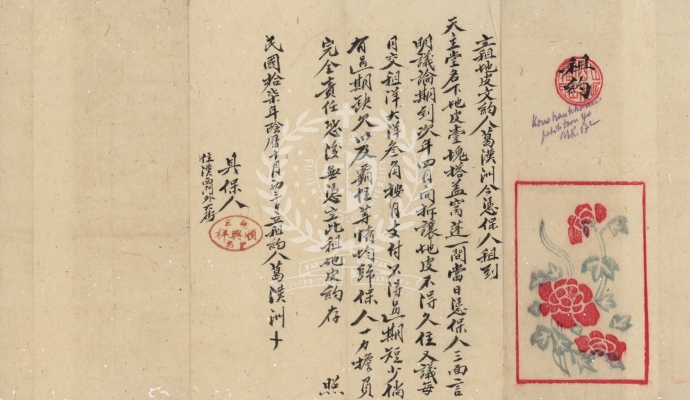 租約
立租地皮文約人葛漢洲今憑保人租到
天主堂名下地皮壹塊搭蓋窩蓬一間當日憑保人三面言
明議論期到次年四月向拆讓地皮不得久住又議每
月交租洋大洋叁角按月支付不得過期短少倘
有過期缺欠以及霸住等情均歸保人一力擔負
完全責任恐後無憑立此租地皮約存照
具保人
住漢西門外大街
順興祥
民國拾柒年陰曆十月初三日立租約人葛漢洲十